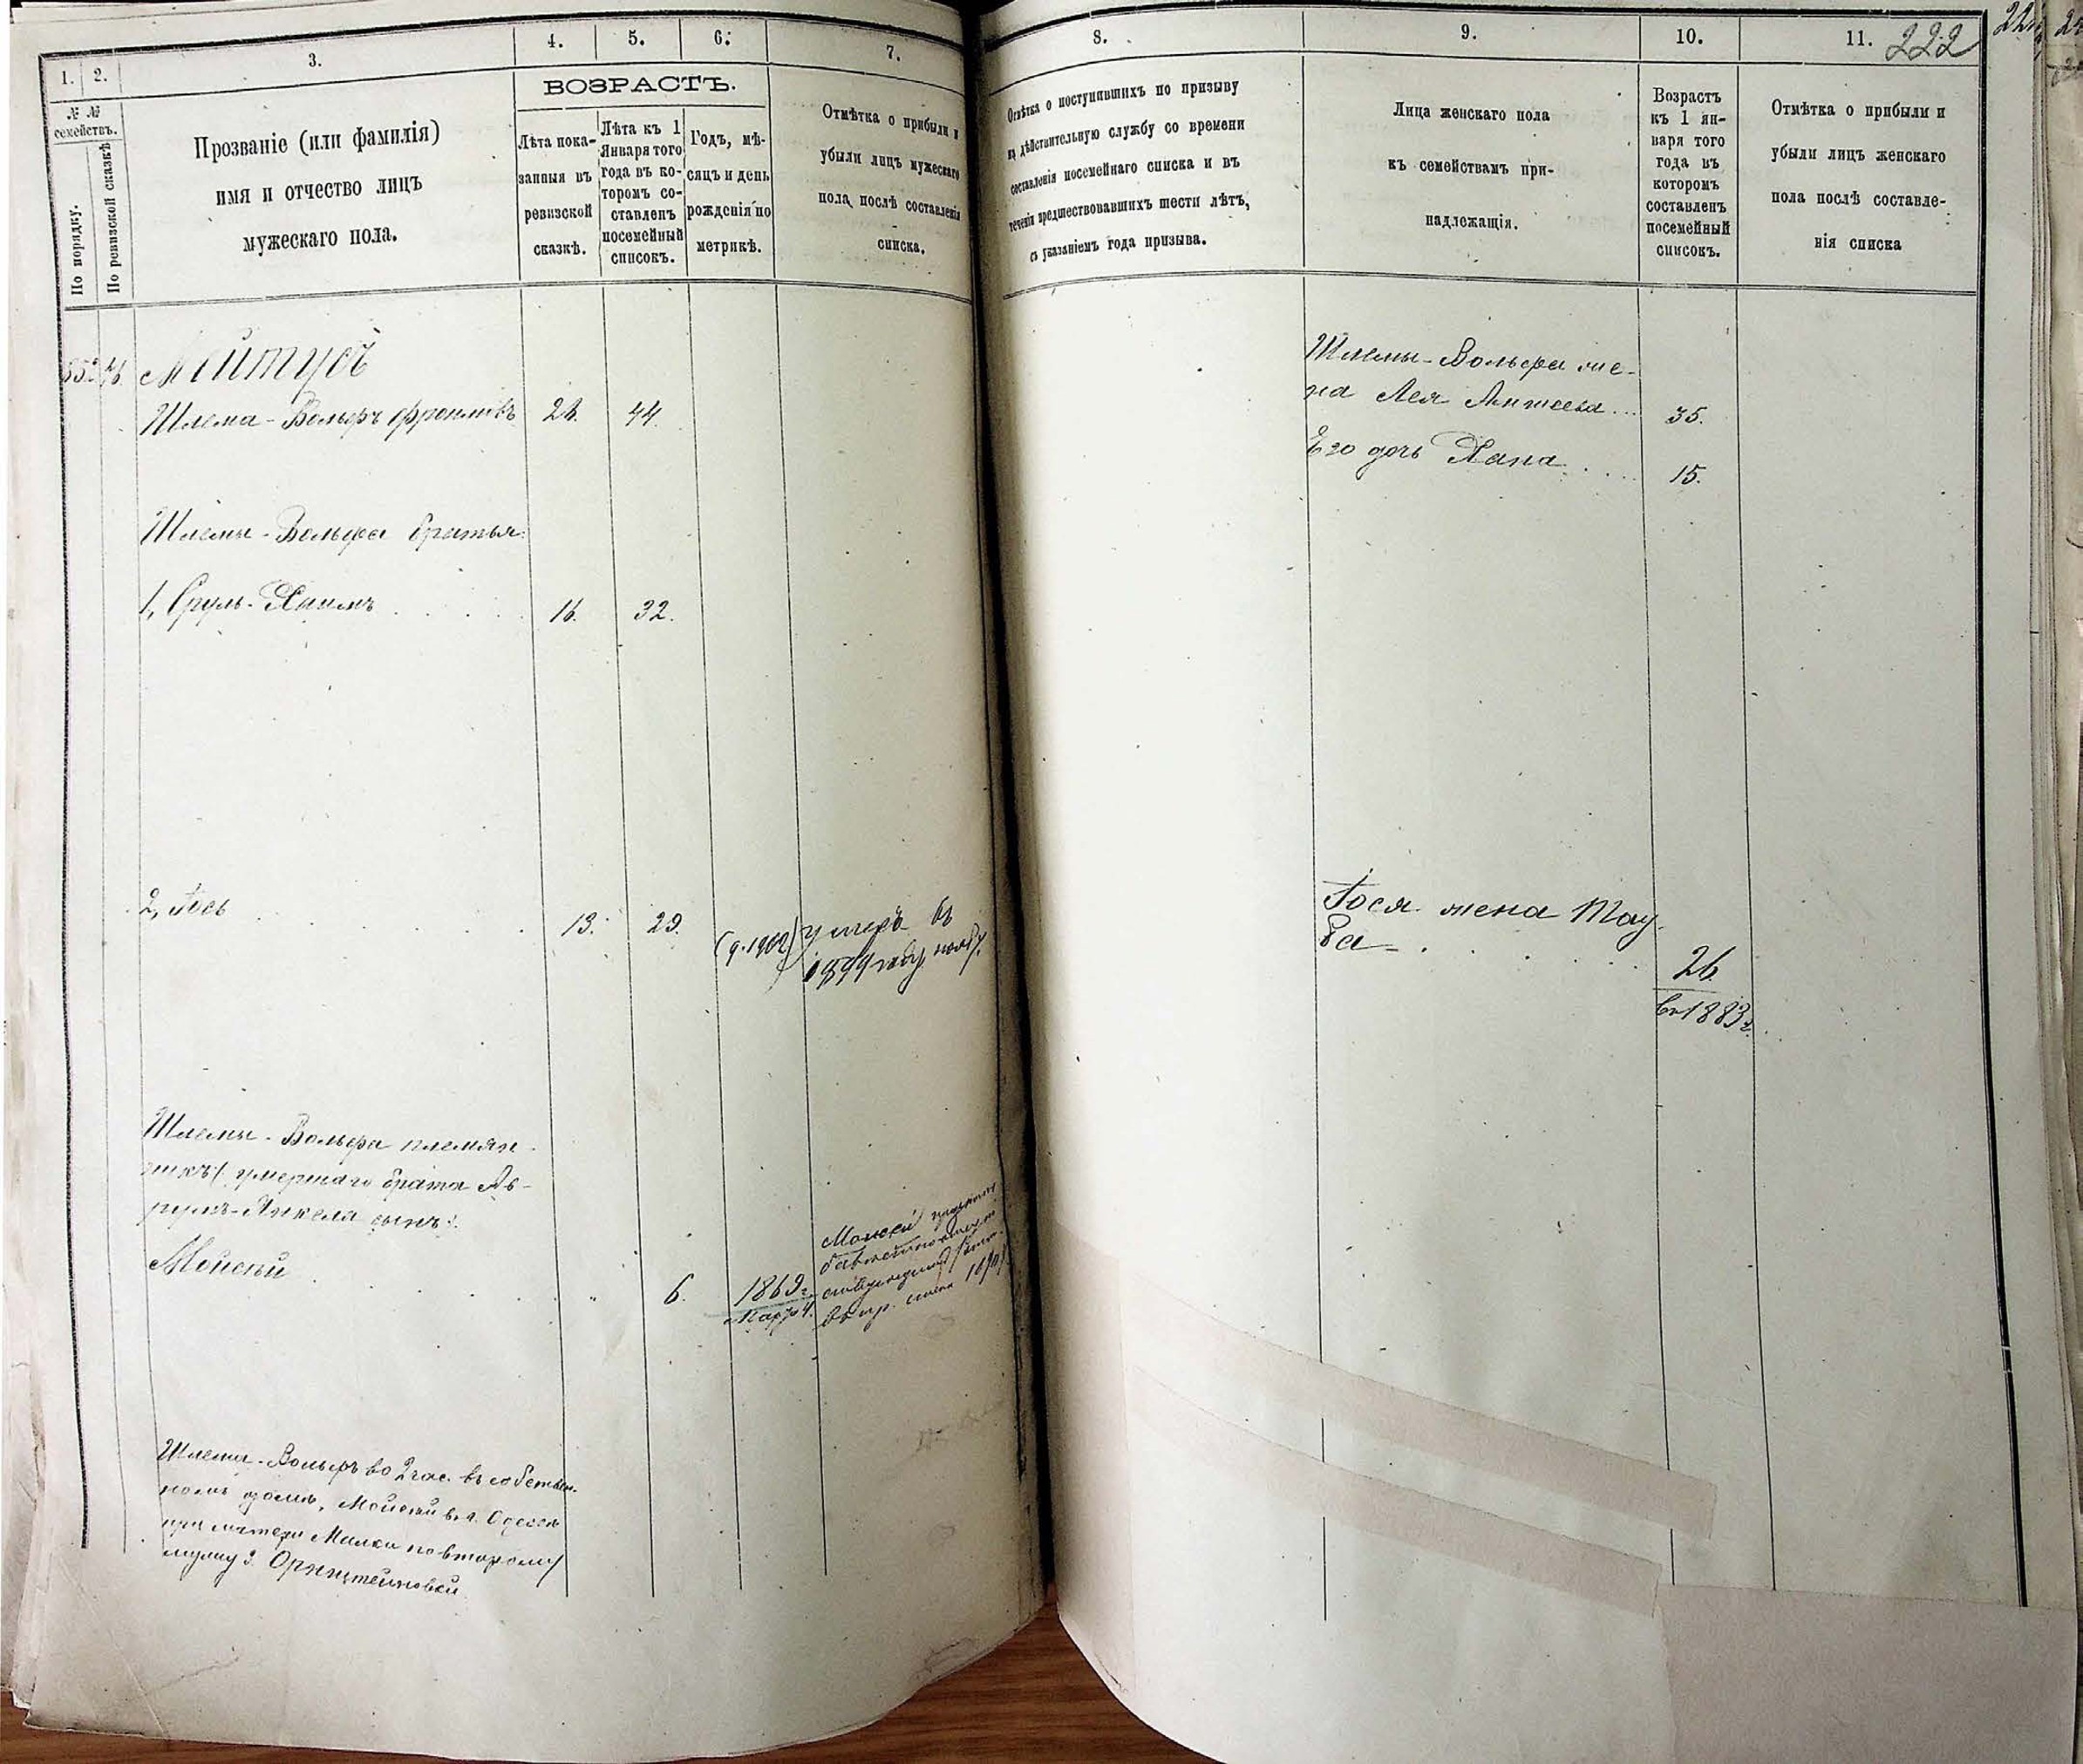 1.
2.
3.
4.
5.
6.
7.
№ №
семействъ.
По порядку.
По ревизской сказкѣ
Прозваніе (или фамилія)
имя и отчество лицъ
мужескаго пола.
ВОЗРАСТЪ.
Лѣта пока-
занныя въ
ревизской
сказкѣ.
Лѣта къ 1
Января того
года въ ко-
торомъ со-
ставленъ
посемейный
списокъ.
Годъ, мѣ-
сяцъ и день
рожденія по
метрикѣ.
Отмѣтка о прибыли и
убыли лицъ мужескаго
пола послѣ составленія
списка.
Мейтусъ
Шлема-Вольфъ 28. 44.
Шлемы-Вольфа братья:
1, Сруль-Хаимъ 16. 32.
2, Іось 13. 29. умеръ въ
1899 году
Шлемы-Вольфа племян-
никъ /: умершаго брата Ав-
румъ-Янкеля сынъ :/
Мойсей 6. 1869 г.
Марта 4.
Шлема-Вольфъ во 2 час. въ собствен-
номъ домѣ, Мойсей въ г. Одессѣ
при матери Малки по второму
мужу
8.
9.
10.
11.
222
Отмѣтка о поступившихъ по призыву
на дѣйствительную службу со времени
составленія посемейнаго списка и въ
теченіи предшествовавшихъ шести лѣтъ,
съ указаніемъ года призыва.
Лица женскаго пола
къ семействамъ при-
надлежащія.
Возрастъ
къ 1 ян-
варя того
года въ
которомъ
составленъ
посемейный
списокъ.
Отмѣтка о прибыли и
убыли лицъ женскаго
пола послѣ составле-
нія списка
Шлемы-Вольфа же-
на Лея 35.
Его дочь Хана 15.
Іося жена Тау-
ба 26
въ 1883 г.